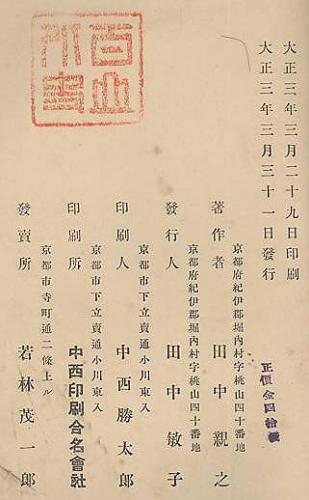 大正三年三月二十九日印刷
大正三年三月三十一日發行
正價金四拾錢
京都府紀伊郡堀內村字桃山四十番地
著作者 田中親之
京都府紀伊郡堀內村字桃山四十番地
發行人 田中敏子
京都市下立賣通小川東入
印刷人 中西勝太郎
京都市下立賣通小川東入
印刷所 中西印刷合名會社
京都市寺町通二條上ル
發賣所 若林茂一郎